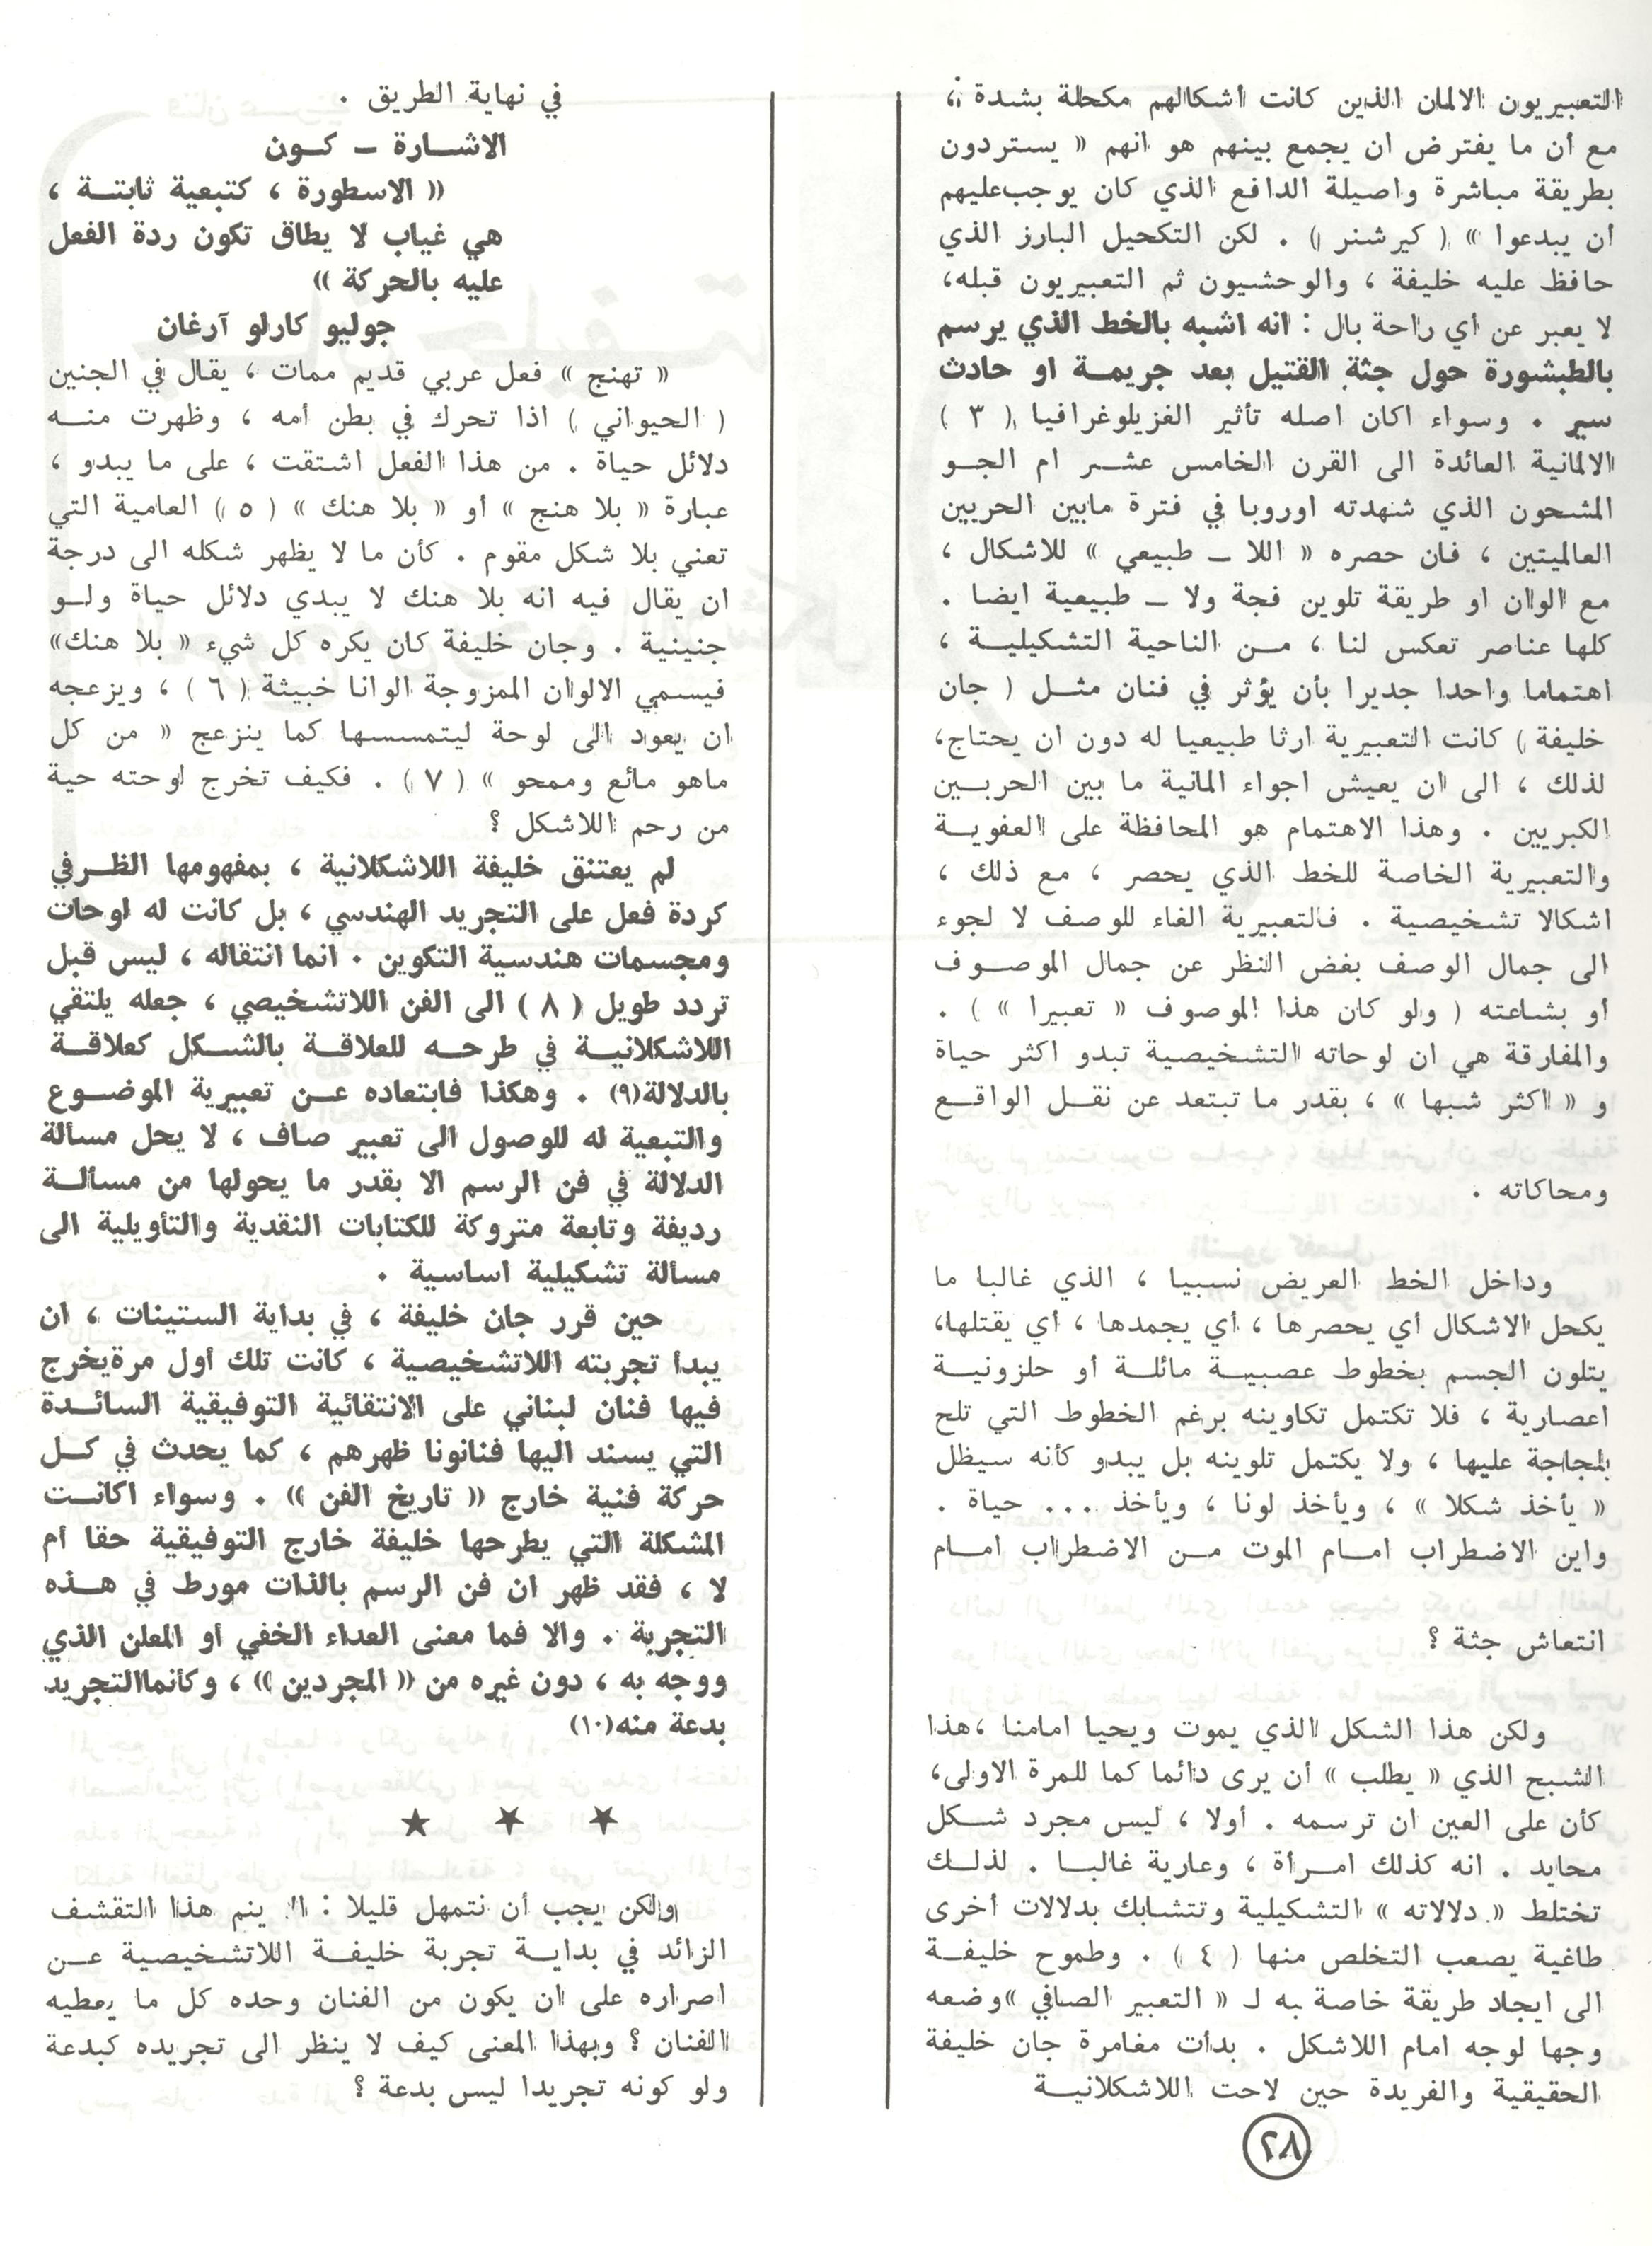 التعبيريون الالمان الذين كانت اشكالهم مكحلة بشدة ،
مع أن ما يفترض ان يجمع بينهم هو انهم « يستردون
بطريقة مباشرة واصيلة الدافع الذي كان يوجب عليهم
ان يبدعوا » ( كيرشنر ) . لكن التكحيل البارز الذي
حافظ عليه خليفة ، والوحشيون ثم التعبيريون قبله،
لا يعبر عن اي راحة بال : انه اشبه بالخط الذي يرسم
بالطبشورة حول جثة القتيل بعد جريمــة او حادث
سير . وسواء اكان اصله تأثير الغزيلوغرافيا ( ٣ )
الالمانية العائدة الى القرن الخامس عشــر ام الجــو
المشحون الذي شهدته اوروبا في فترة مابين الحربين
العالميتين ، فان حصره « اللا ــ طبيعي » للاشكال ،
مع الوان او طريقة تلوين فجة ولا ــ طبيعية ايضا .
كلها عناصر تعكس لنا ، مــن الناحية التشكيليــة ،
اهتماما واحدا جديرا بأن يؤثر في فنان مثــل ( جان
خليفة ) كانت التعبيرية ارثا طبيعيا له دون ان يحتاج،
لذلك ، الى ان يعيش اجواء المانية ما بين الحربــين
الكبريين . وهذا الاهتمام هو المحافظة على العفويــة
والتعبيرية الخاصة للخط الذي يحصر ، مع ذلك ،
اشكالا تشخيصية . فالتعبيرية الغاء للوصف لا لجوء
الى جمال الوصف بغض النظر عن جمال الموصــوف
أو بشاعته ( ولو كان هذا الموصوف « تعبيرا » ) .
والمفارقة هي ان لوحاته التشخيصية تبدو اكثر حياة
و « اكثر شبها » ، بقدر ما تبتعد عن نقــل الواقــع
ومحاكاته .
وداخل الخط العريض نسبيا ، الذي غالبا ما
يكحل الاشكال أي يحصرها ، أي يجمدها ، أي يقتلها،
يتلون الجسم بخطوط عصبيــة مائلــة أو حلزونيــة
اعصارية ، فلا تكتمل تكاوينه برغم الخطوط التي تلح
بلجاجة عليها ، ولا يكتمل تلوينه بل يبدو كأنه سيظل
« يأخذ شكلا » ، ويأخذ لونا ، ويأخذ ... حياة .
واين الاضطراب امــام الموت مــن الاضطراب امــام
انتعاش جثة ؟
ولكن هذا الشكل الذي يموت ويحيا امامنا ،هذا
الشبح الذي « يطلب » أن يرى دائما كما للمرة الاولى،
كأن على العين ان ترسمه . أولا ، ليس مجرد شــكل
محايد . انه كذلك امــرأة ، وعارية غالبــا . لذلــك
تختلط « دلالاته » التشكيلية وتتشابك بدلالات أخرى
طاغية يصعب التخلص منها ( ٤ ) . وطموح خليفــة
الى ايجاد طريقة خاصة به لـ « التعبير الصافي »وضعه
وجها لوجه امام اللاشكل . بدات مغامرة جان خليفة
الحقيقية والفريدة حين لاحت اللاشكلانيــة
في نهاية الطريق .
الاشــارة ــ كــون
« الاسطورة ، كتبعية ثابتــة ،
هي غياب لا يطاق تكون ردة الفعل
عليه بالحركة »
جوليو كارلو آرغان
« تهنج » فعل عربي قديم ممات ، يقال في الجنين
( الحيواني ) اذا تحرك في بطن أمه ، وظهرت منــه
دلائل حياة . من هذا الفعل اشتقت ، على ما يبدو ،
عبارة « بلا هنج » أو « بلا هنك » ( ٥ ) العامية التي
تعني بلا شكل مقوم . كأن ما لا يظهر شكله الى درجة
ان يقال فيه انه بلا هنك لا يبدي دلائل حياة ولــو
جنينية . وجان خليفة كان يكره كل شيء « بلا هنك»
فيسمي الالوان الممزوجة الوانا خبيثة ( ٦ ) ، ويزعجه
ان يعود الى لوحة ليتمسسها كما ينزعج « من كل
ماهو مائع وممحو » ( ٧ ) . فكيف تخرج لوحته حية
من رحم اللاشكل ؟
لم يعتنق خليفة اللاشكلانية ، بمفهومها الظــرفي
كردة فعل على التجريد الهندسي ، بل كانت له لوحات
ومجسمات هندسية التكوين . انما انتقاله ، ليس قبل
تردد طويل ( ٨ ) الى الفن اللاتشخيصي ، جعله يلتقي
اللاشكلانيــة في طرحــه للعلاقــة بالشــكل كعلاقــة
بالدلالة(٩) . وهكذا فابتعاده عــن تعبيرية الموضــوع
والتبعية له للوصول الى تعبير صاف ، لا يحل مسألة
الدلالة في فن الرسم الا بقدر ما يحولها من مسألــة
رديفة وتابعة متروكة للكتابات النقدية والتأويلية الى
مسألة تشكيلية اساسية .
حين قرر جان خليفة ، في بداية الستينات ، ان
يبدأ تجربته اللاتشخيصية ، كانت تلك أول مرةيخرج
فيها فنان لبناني على الانتقائية التوفيقية السائــدة
التي يسند اليها فنانونا ظهرهم ، كما يحدث في كــل
حركة فنية خارج « تاريخ الفن » . وسواء اكانــت
المشكلة التي يطرحها خليفة خارج التوفيقية حقا أم
لا ، فقد ظهر ان فن الرسم بالذات مورط في هــذه
التجربة . والا فما معنى العداء الخفي أو المعلن الذي
ووجه به ، دون غيره من « المجردين » ، وكأنماالتجريد
بدعة منه(١٠)
★ ★ ★
ولكن يجب أن نتمهل قليلا : الا ينم هذا التقشف
الزائد في بدايــة تجربة خليفــة اللاتشخيصية عــن
اصراره على ان يكون من الفنان وحده كل ما يعطيه
الفنان ؟ وبهذا المعنى كيف لا ينظر الى تجريده كبدعة
ولو كونه تجريدا ليس بدعة ؟
٢٨